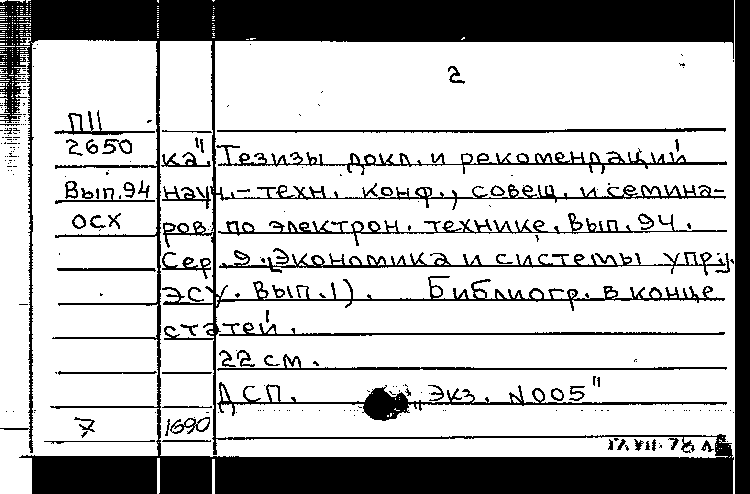 2
П11
2650
ка". Тезизы докл. и рекомендаций
Вып.94 науч.-техн. конф., совещ. и семина-
ОСХ ров по электрон. технике. Вып. 94.
Сер. 9. Экономика и системы упр.
ЭСУ. Вып. 1). Библиогр. в конце
статей.
22 см.
ДСП. „Экз. N005"
7 1690
VII. 78